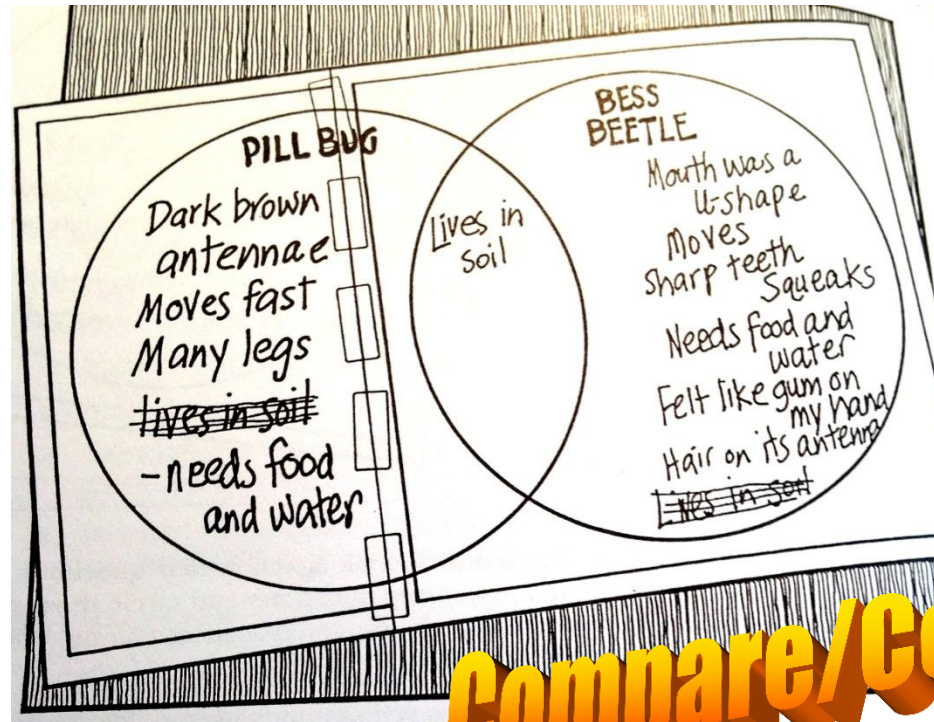 PILL BUG
Dark brown
antennae
Moves fast
Many legs
lives in soil
-needs food
and water
Lives in
soil
BESS
BEETLE
Mouth was a
U-shape
Moves
Sharp teeth
Squeaks
Needs food and
water
Felt like gum on
my hand
Hair on its antenna
Lives in soil
Compare/Co